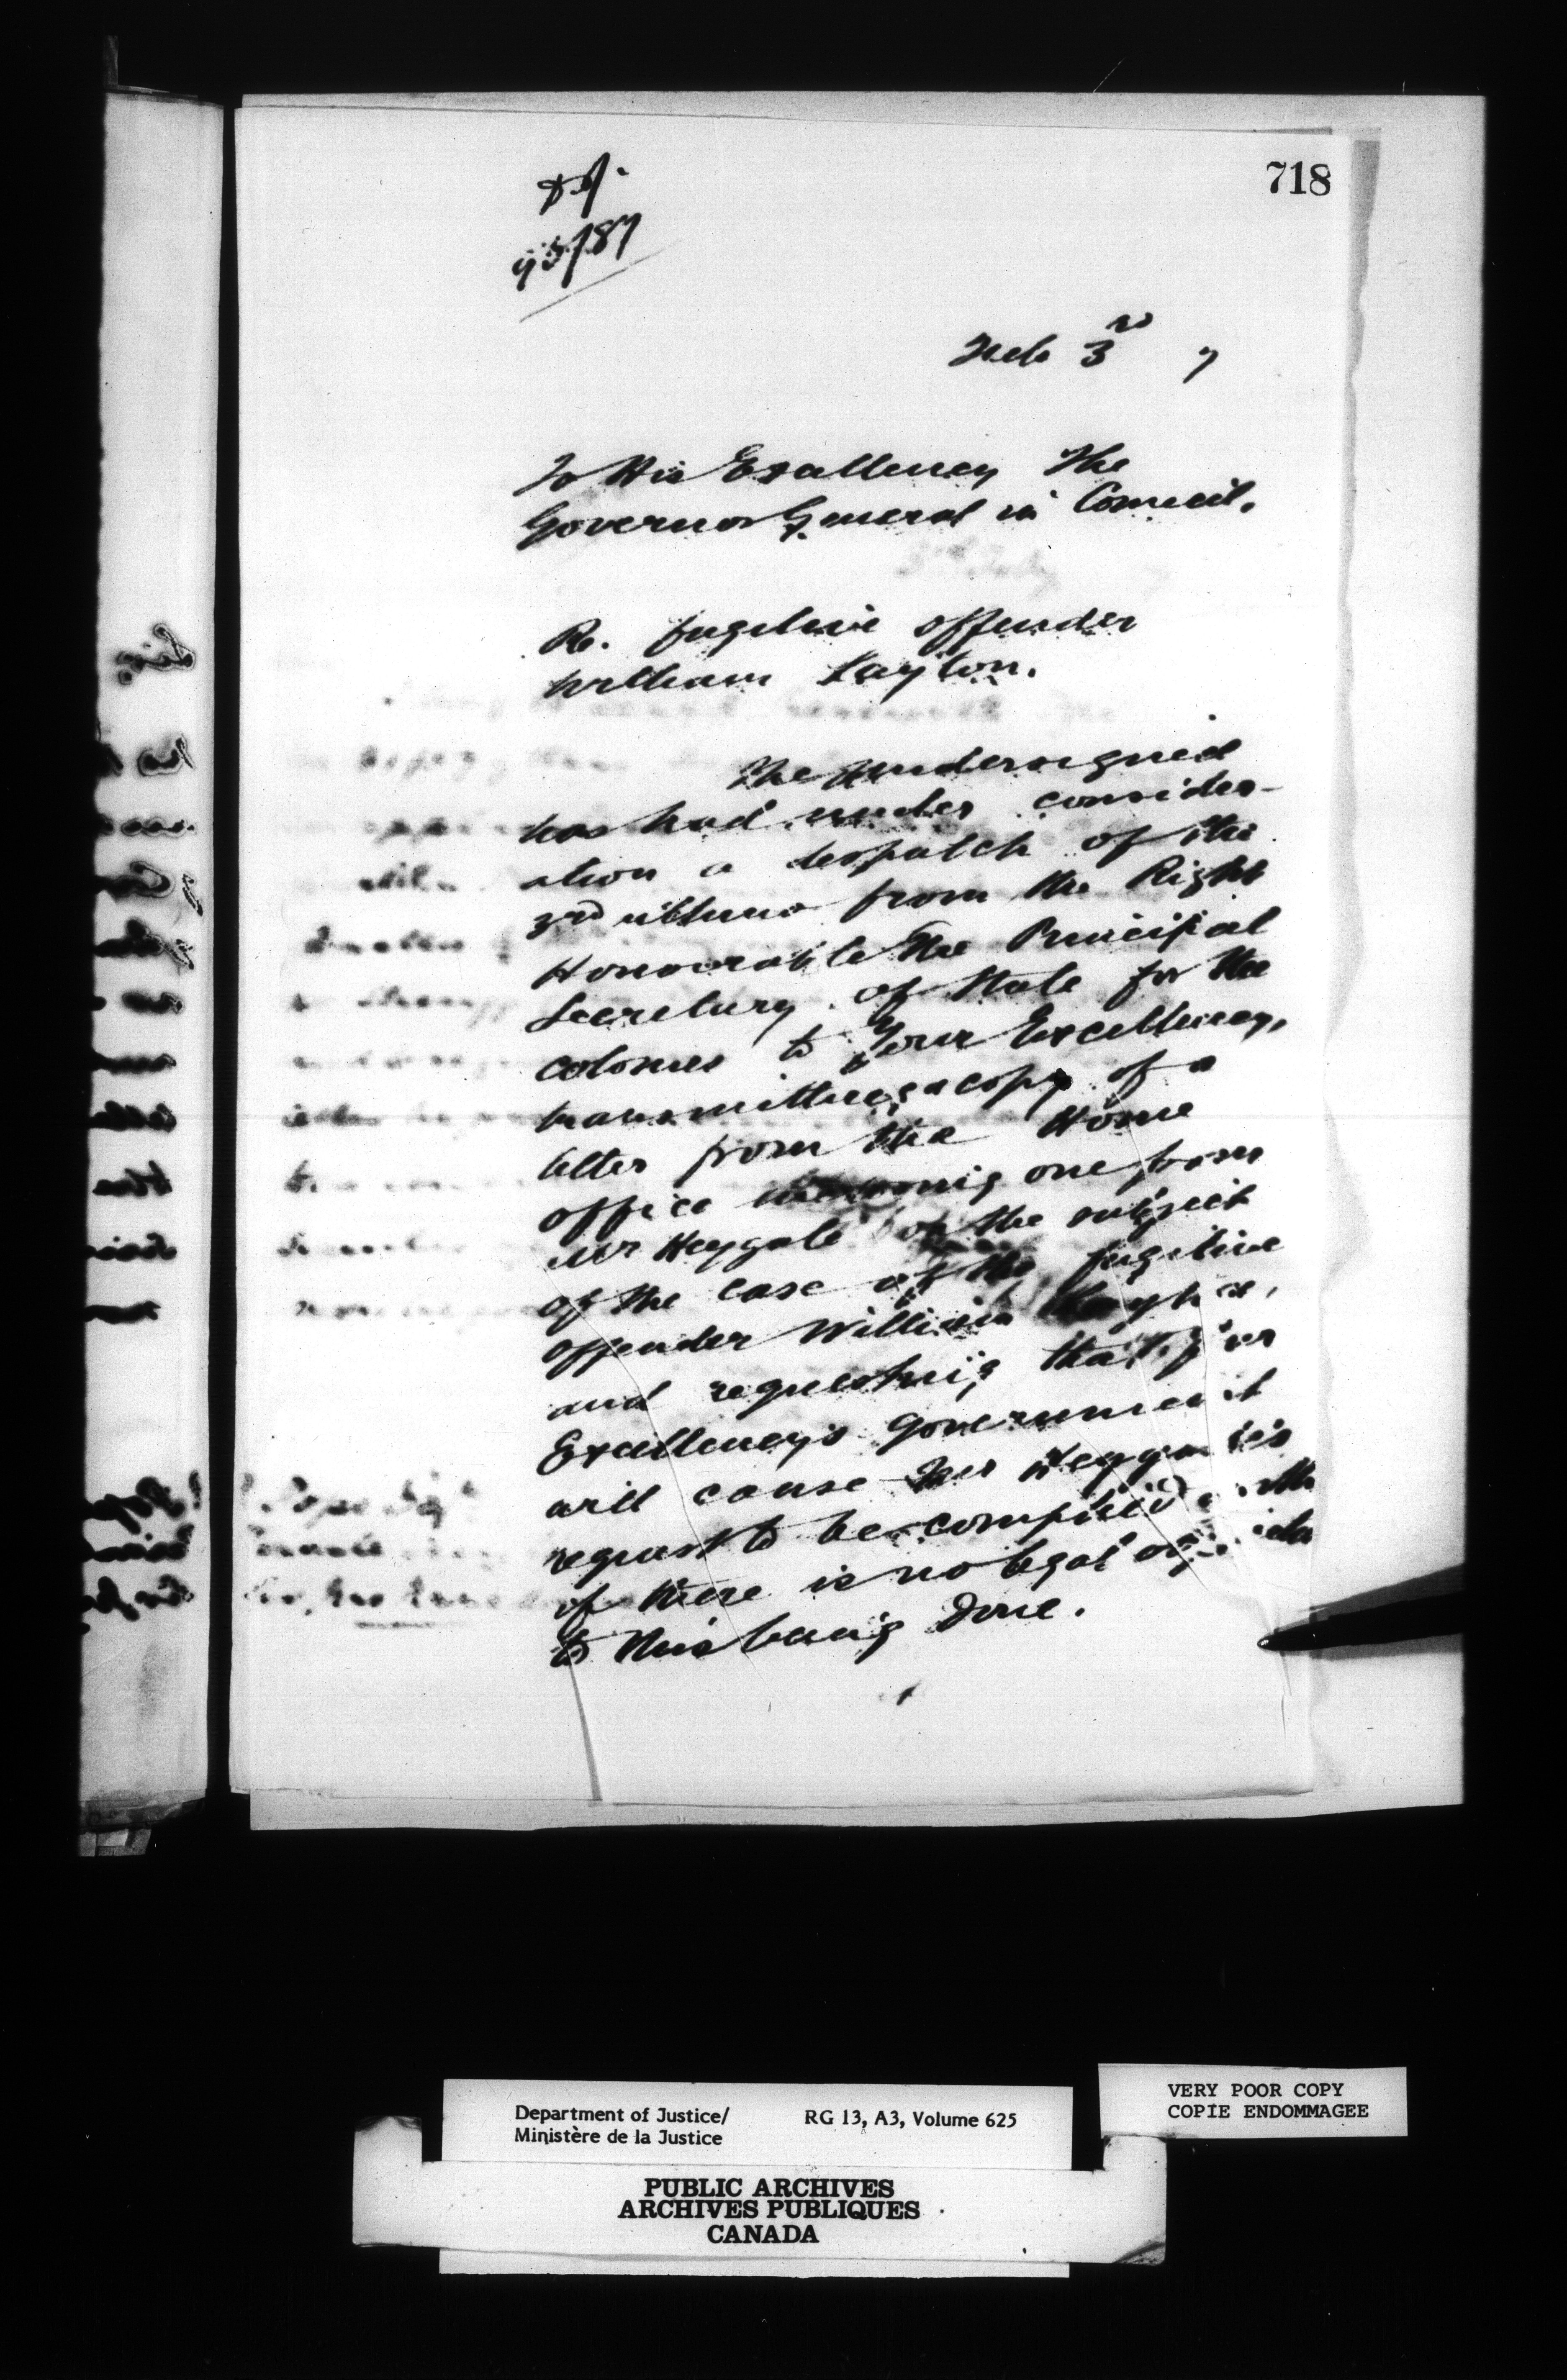 718
93/87
Feb 3rd 7
To His Excellency The
Governor General in Council.
Re. fugitive offender
William Layton.
The undersigned
has had under consider-
ation a despatch of the
3rd ultimo from the Right
Honourable the Principal
Secretary of State for the
Colonies to Your Excellency,
transmitting a copy of a
letter from the Home
office one from
Mr Heygate on the subject
of the case of the fugitive
offender William
and requesting that your
Excellency's Government
will cause Mr Heygate's
request to be complied with
if there is no legal
to this being done.
Department of Justice/ RG 13, A3, Volume 625
Ministère de la Justice
VERY POOR COPY
COPIE ENDOMMAGEE
PUBLIC ARCHIVES
ARCHIVES PUBLIQUES
CANADA